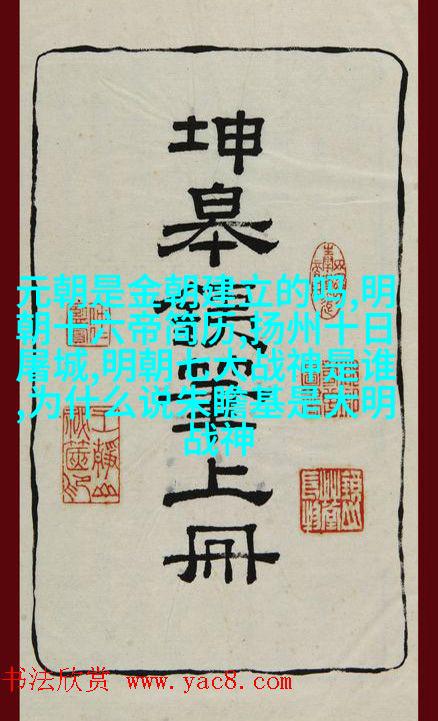 坤皋鐵筆上冊
元朝是金朝建立的吗,明
朝十六帝简历,扬州十日
屠城,明朝七大战神是谁
,为什么说朱瞻基是大明
战神
书法欣赏 www.yac8.com